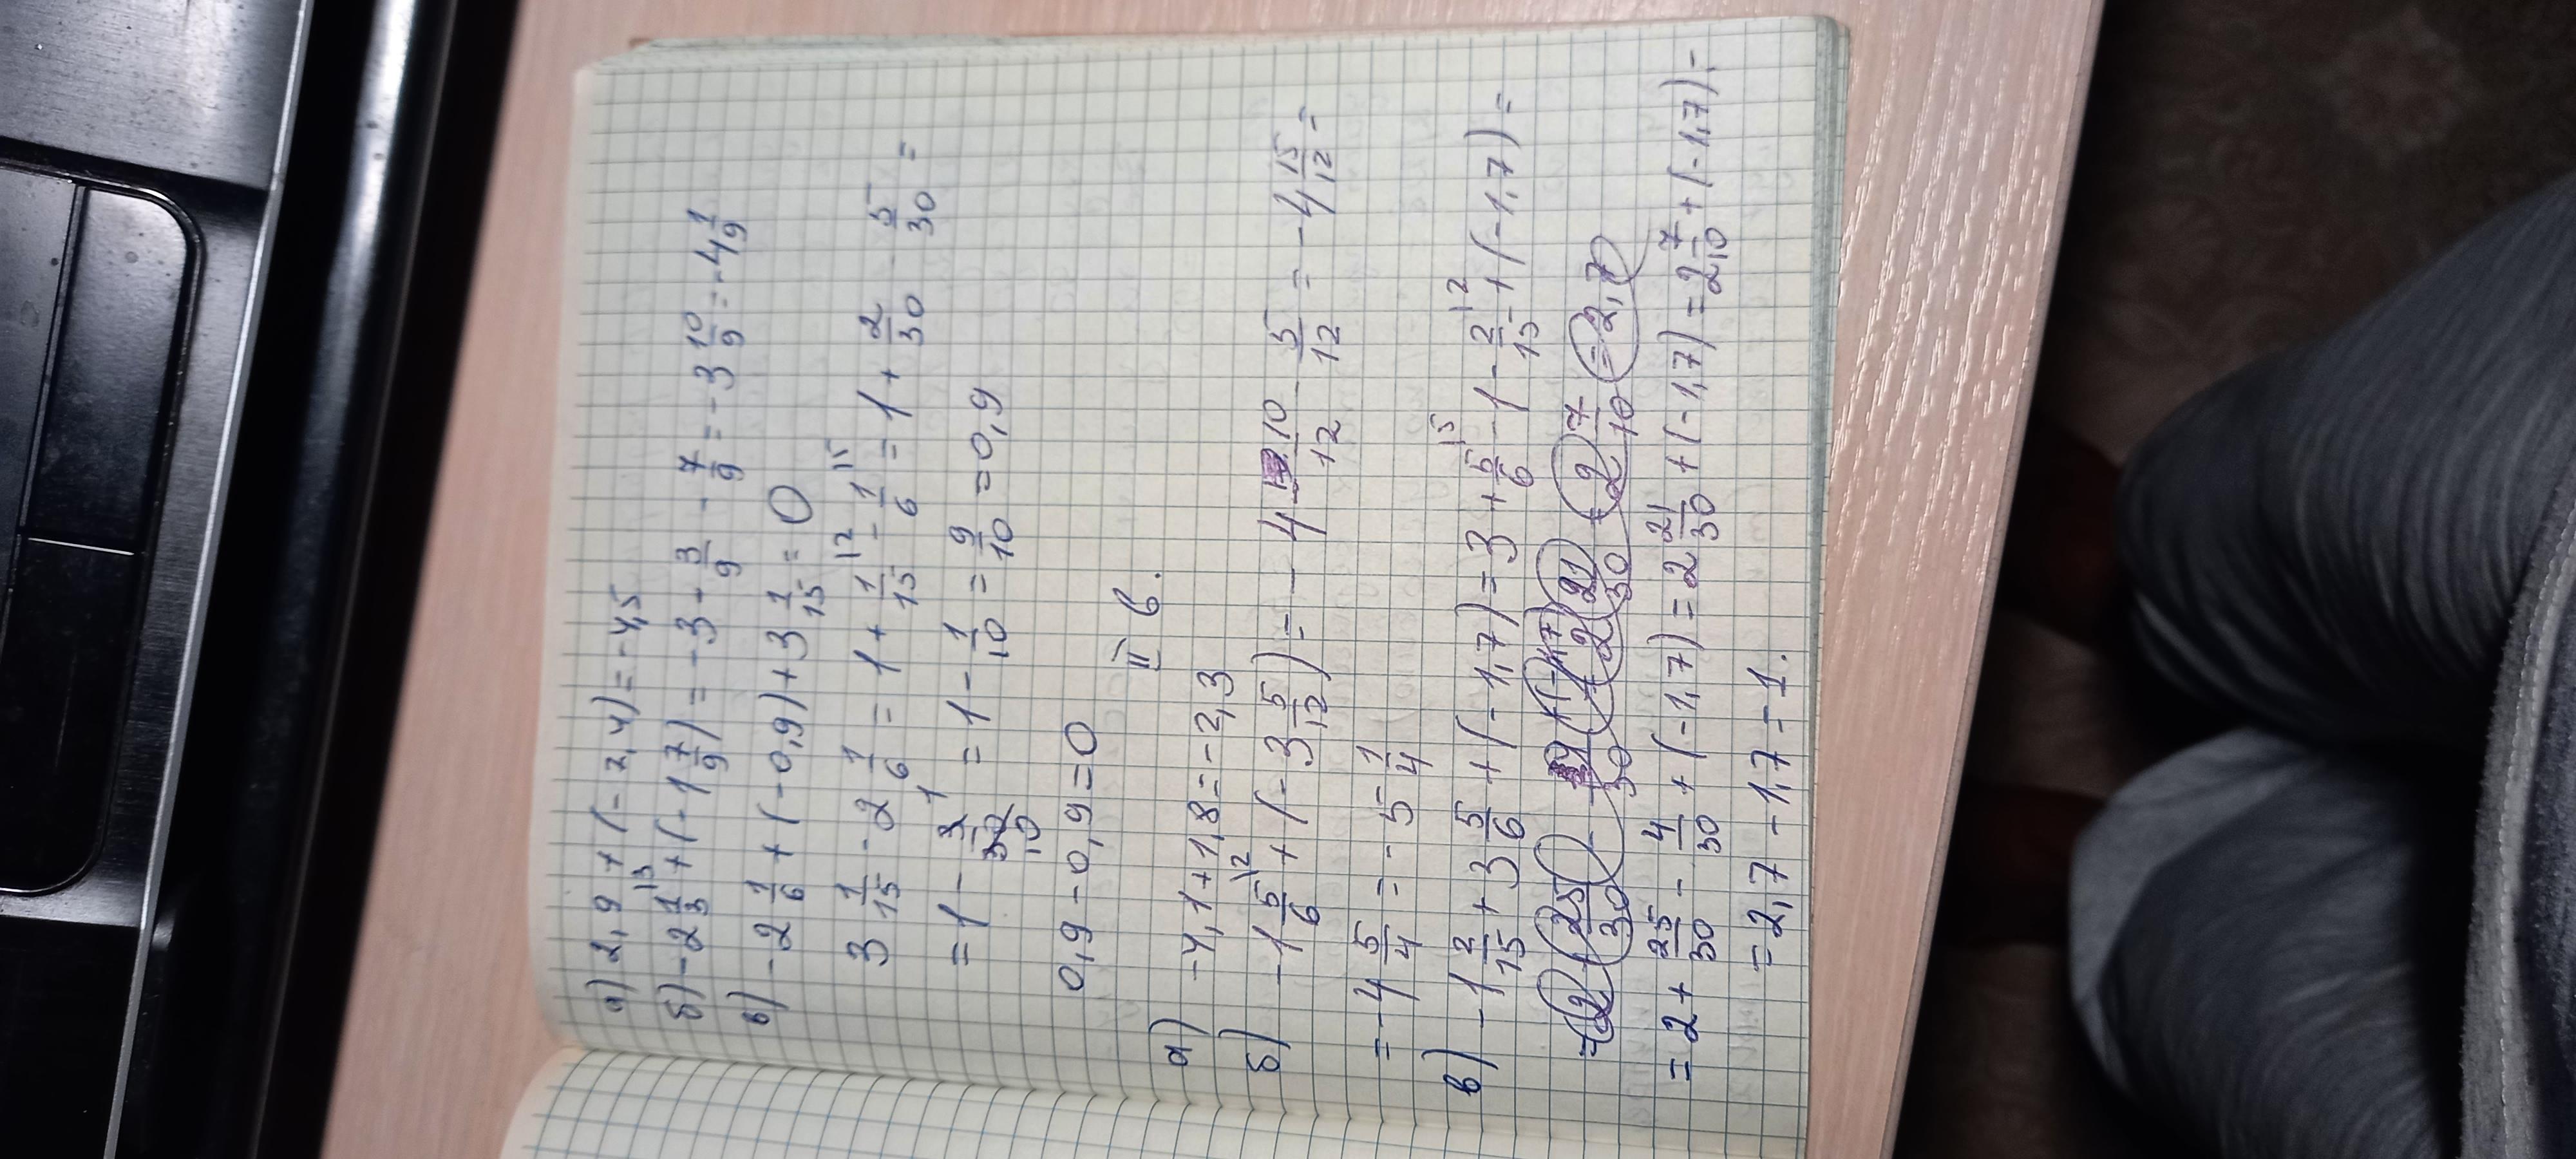 а) 2,9 + (-7,4) = -4,5
б) -2 1/3 + (-1 7/9) = -3 - 3/9 - 7/9 = -3 10/9 = -4 1/9
в) -2 1/6 + (-0,9) + 3 1/15 = 0
3 1/15 - 2 1/6 = 1 + 1/15 - 1/6 = 1 + 2/30 - 5/30 =
= 1 - 3/30 = 1 - 1/10 = 9/10 = 0,9
0,9 - 0,9 = 0
II в.
а) -4,1 + 1,8 = -2,3
б) -1 5/6 + (-3 5/12) = -4 10/12 - 5/12 = -4 15/12 =
= -4 5/4 = -5 1/4
в) -1 2/15 + 3 5/6 + (-1,7) = 3 + 5/6 - 1 - 2/15 + (-1,7) =
= 2 + 25/30 - 4/30 + (-1,7) = 2 21/30 + (-1,7) = 2 7/10 + (-1,7) =
= 2,7 - 1,7 = 1.